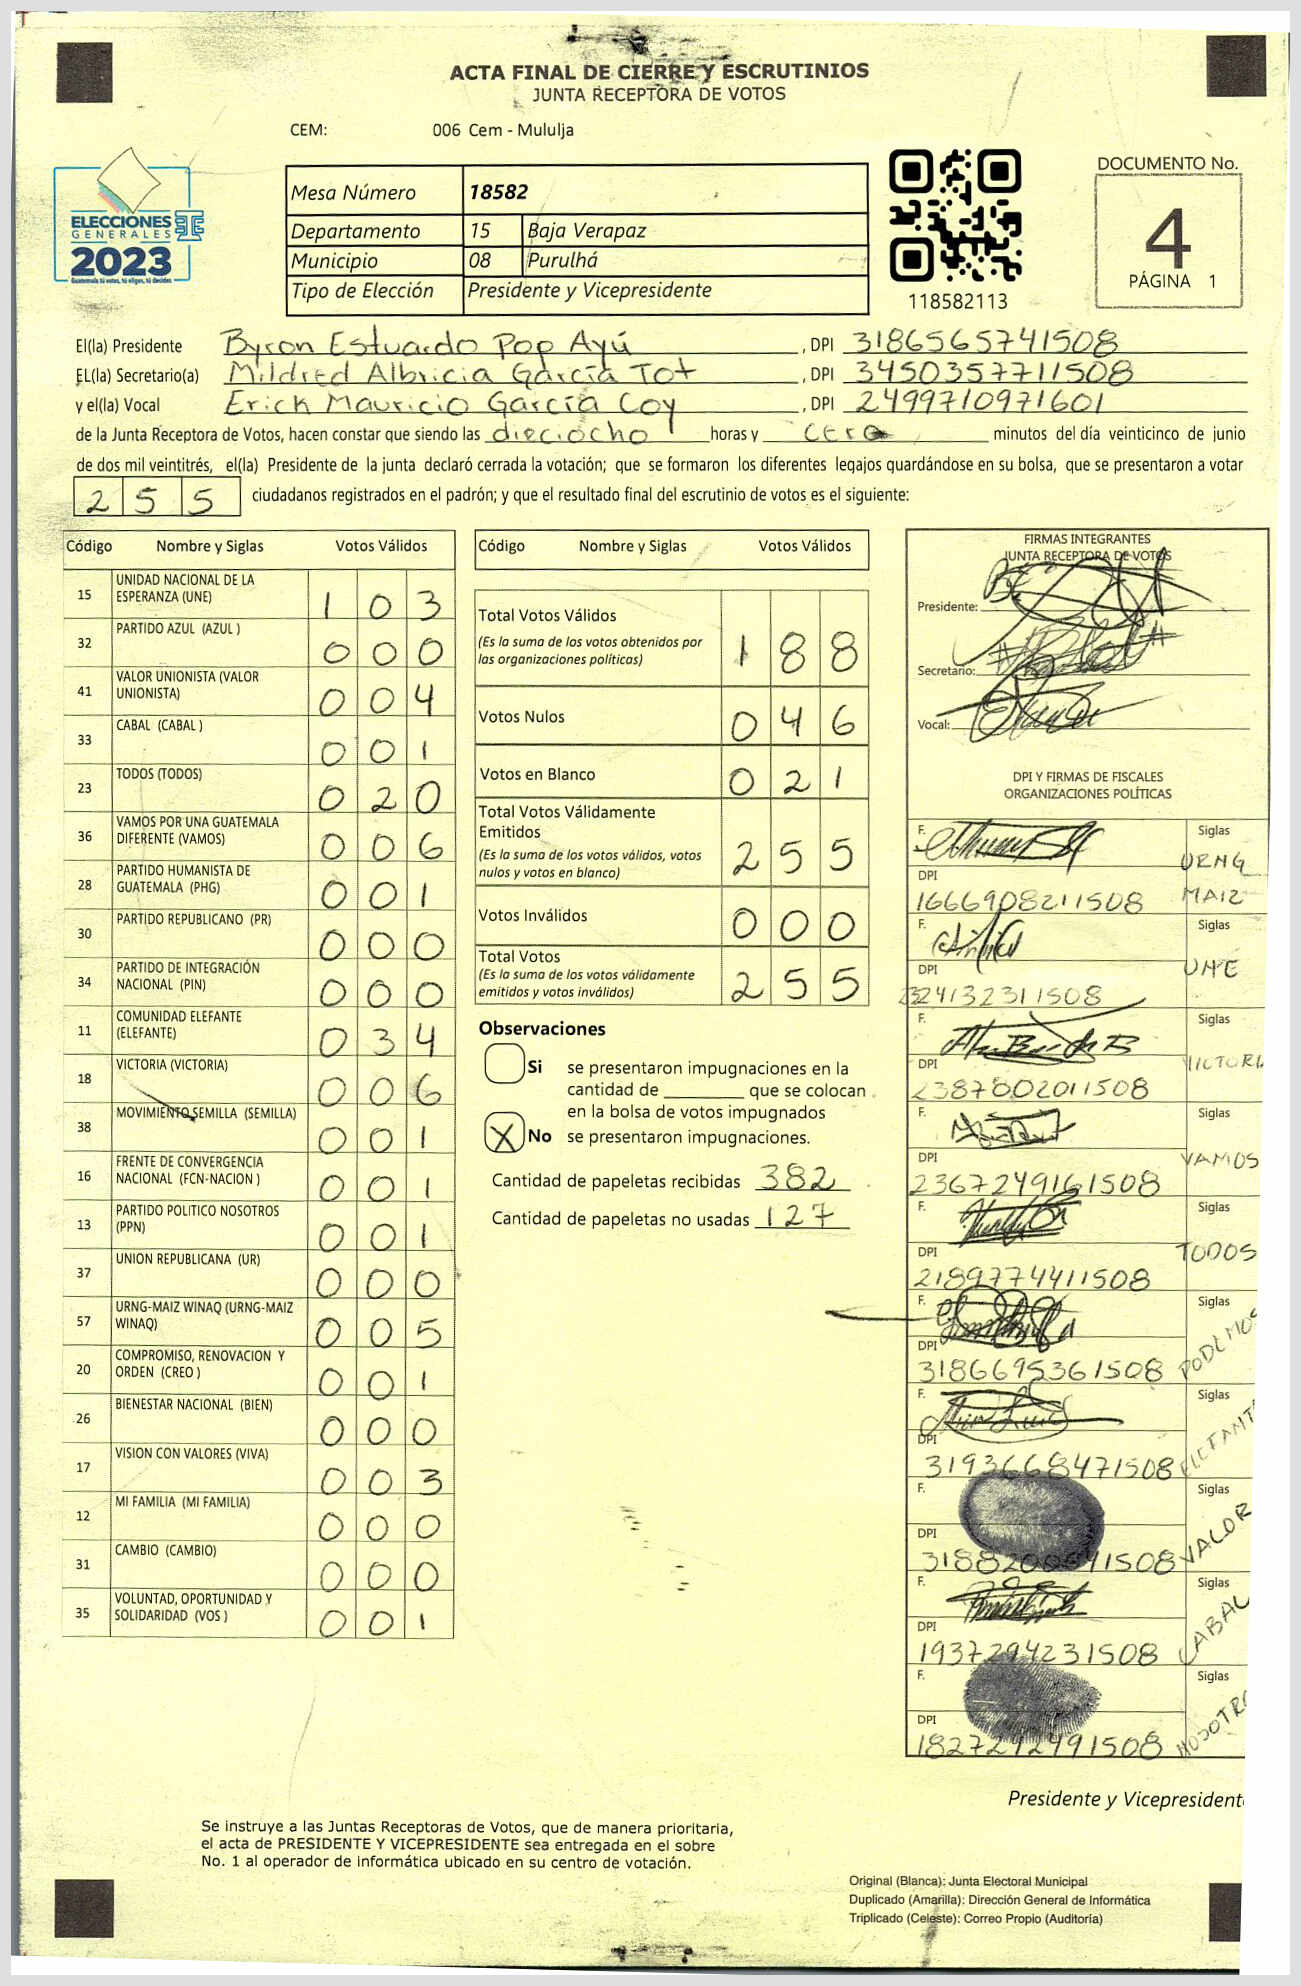 ACTA FINAL DE CIERRE Y ESCRUTINIOS
JUNTA RECEPTORA DE VOTOS
CEM: 006 Cem - Mululja
ELECCIONES
GENERALES
2023
Guatemala tú votas, tú eliges, tú decides
Mesa Número 18582
Departamento 15 Baja Verapaz
Municipio 08 Purulhá
Tipo de Elección Presidente y Vicepresidente
118582113
DOCUMENTO No.
4
PÁGINA 1
El(la) Presidente Byron Estuardo Pop Ayú, DPI 3186565741508
EL(la) Secretario(a) Mildred Albricia García Tot, DPI 3450357711508
y el(la) Vocal Erick Mauricio García Coy, DPI 2499710971601
de la Junta Receptora de Votos, hacen constar que siendo las dieciocho horas y cero minutos del día veinticinco de junio
de dos mil veintitrés, el(la) Presidente de la junta declaró cerrada la votación; que se formaron los diferentes legajos guardándose en su bolsa, que se presentaron a votar
255 ciudadanos registrados en el padrón; y que el resultado final del escrutinio de votos es el siguiente:
Código Nombre y Siglas Votos Válidos
15 UNIDAD NACIONAL DE LA ESPERANZA (UNE) 103
32 PARTIDO AZUL (AZUL ) 000
41 VALOR UNIONISTA (VALOR UNIONISTA) 004
33 CABAL (CABAL ) 001
23 TODOS (TODOS) 020
36 VAMOS POR UNA GUATEMALA DIFERENTE (VAMOS) 006
28 PARTIDO HUMANISTA DE GUATEMALA (PHG) 001
30 PARTIDO REPUBLICANO (PR) 000
34 PARTIDO DE INTEGRACIÓN NACIONAL (PIN) 000
11 COMUNIDAD ELEFANTE (ELEFANTE) 034
18 VICTORIA (VICTORIA) 006
38 MOVIMIENTO SEMILLA (SEMILLA) 001
16 FRENTE DE CONVERGENCIA NACIONAL (FCN-NACION ) 001
13 PARTIDO POLITICO NOSOTROS (PPN) 001
37 UNION REPUBLICANA (UR) 000
57 URNG-MAIZ WINAQ (URNG-MAIZ WINAQ) 005
20 COMPROMISO, RENOVACION Y ORDEN (CREO ) 001
26 BIENESTAR NACIONAL (BIEN) 000
17 VISION CON VALORES (VIVA) 003
12 MI FAMILIA (MI FAMILIA) 000
31 CAMBIO (CAMBIO) 000
35 VOLUNTAD, OPORTUNIDAD Y SOLIDARIDAD (VOS ) 001
Código Nombre y Siglas Votos Válidos
Total Votos Válidos 188
(Es la suma de los votos obtenidos por
las organizaciones políticas)
Votos Nulos 046
Votos en Blanco 021
Total Votos Válidamente
Emitidos 255
(Es la suma de los votos válidos, votos
nulos y votos en blanco)
Votos Inválidos 000
Total Votos 255
(Es la suma de los votos válidamente
emitidos y votos inválidos)
Observaciones
Si se presentaron impugnaciones en la
cantidad de ________ que se colocan
en la bolsa de votos impugnados
X No se presentaron impugnaciones.
Cantidad de papeletas recibidas 382
Cantidad de papeletas no usadas 127
FIRMAS INTEGRANTES
JUNTA RECEPTORA DE VOTOS
Presidente:
Secretario:
Vocal:
DPI Y FIRMAS DE FISCALES
ORGANIZACIONES POLÍTICAS
F. Siglas URNG MAIZ
DPI 1666908211508
F. Siglas UNE
DPI 2324132311508
F. Siglas VICTORIA
DPI 2387802011508
F. Siglas VAMOS
DPI 2367249161508
F. Siglas TODOS
DPI 2189774411508
F. Siglas PODEMOS
DPI 3186695361508
F. Siglas ELEFANTE
DPI 3193668471508
F. Siglas VALOR
DPI
F. Siglas CABAL
DPI 1937294231508
F. Siglas NOSOTRO
DPI
Presidente y Vicepresident
Se instruye a las Juntas Receptoras de Votos, que de manera prioritaria,
el acta de PRESIDENTE Y VICEPRESIDENTE sea entregada en el sobre
No. 1 al operador de informática ubicado en su centro de votación.
Original (Blanca): Junta Electoral Municipal
Duplicado (Amarilla): Dirección General de Informática
Triplicado (Celeste): Correo Propio (Auditoría)